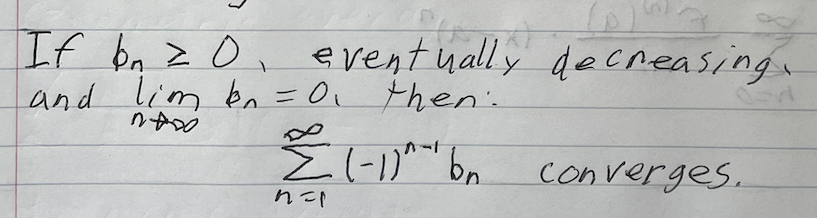 If bₙ ≥ 0, eventually decreasing,
and lim bₙ = 0, then:
n→∞
∞
∑ (-1)ⁿ⁻¹ bₙ converges.
n=1